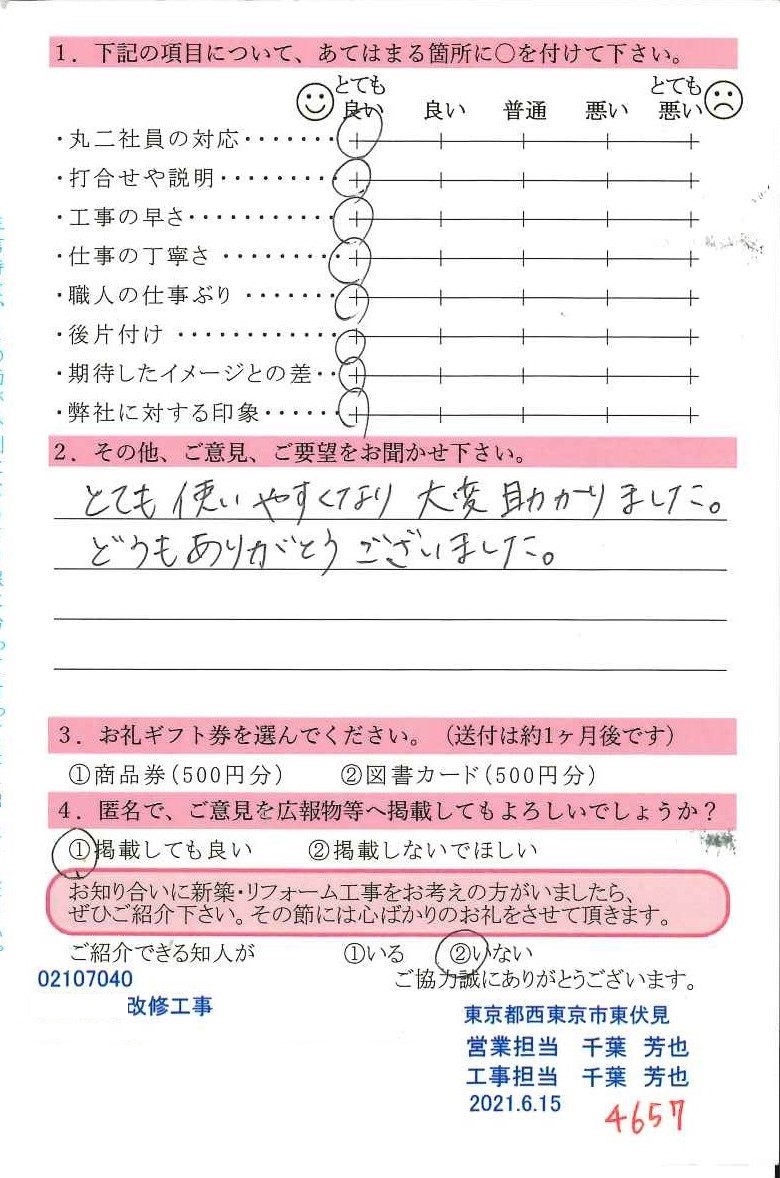 1．下記の項目について、あてはまる箇所に○を付けて下さい。
とても良い 良い 普通 悪い とても悪い
・丸二社員の対応・・・・・・・
・打合せや説明・・・・・・・・
・工事の早さ・・・・・・・・・・
・仕事の丁寧さ・・・・・・・・
・職人の仕事ぶり・・・・・・・
・後片付け・・・・・・・・・・・・
・期待したイメージとの差・・
・弊社に対する印象・・・・・・
2．その他、ご意見、ご要望をお聞かせ下さい。
とても使いやすくなり大変助かりました。
どうもありがとうございました。
3．お礼ギフト券を選んでください。（送付は約1ヶ月後です）
①商品券（500円分） ②図書カード（500円分）
4．匿名で、ご意見を広報物等へ掲載してもよろしいでしょうか？
①掲載しても良い ②掲載しないでほしい
お知り合いに新築・リフォーム工事をお考えの方がいましたら、
ぜひご紹介下さい。その節には心ばかりのお礼をさせて頂きます。
ご紹介できる知人が ①いる ②いない
ご協力誠にありがとうございます。
02107040
改修工事
東京都西東京市東伏見
営業担当 千葉 芳也
工事担当 千葉 芳也
2021.6.15
4657